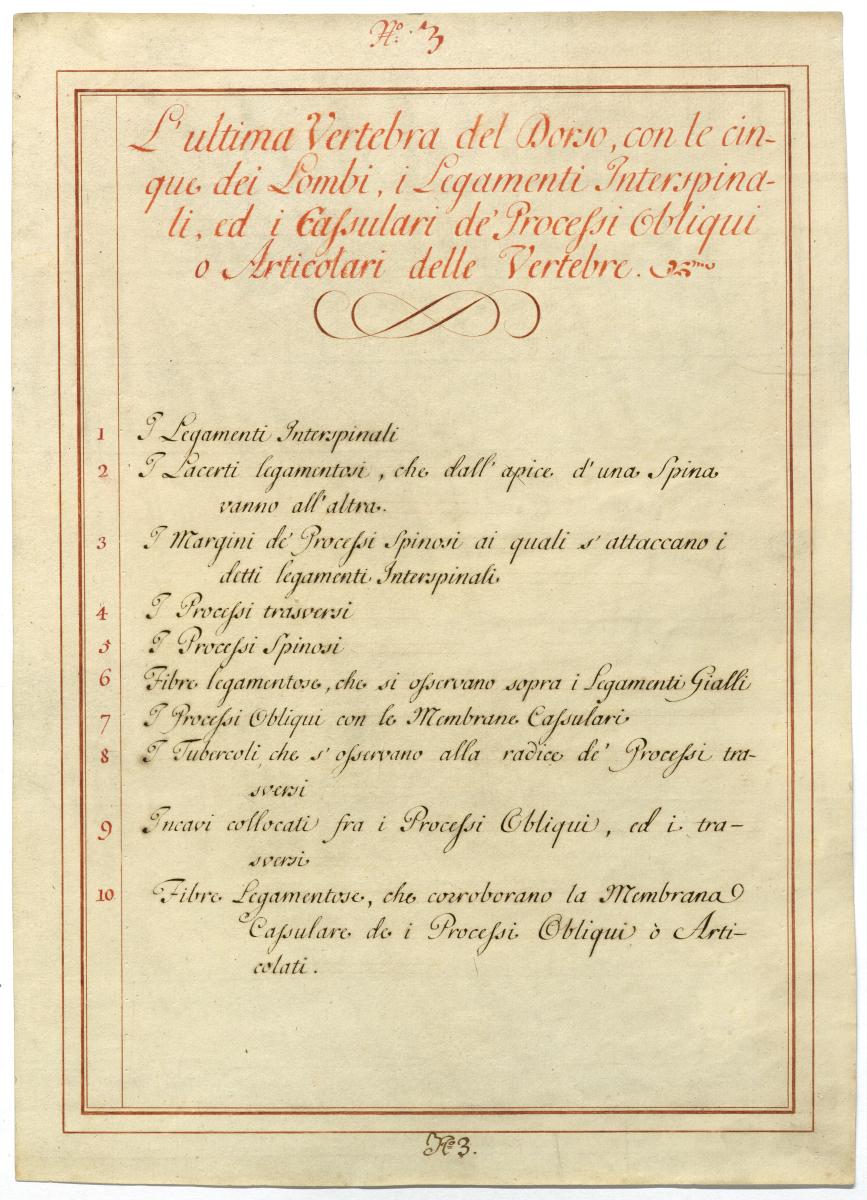 N.º 3
L'ultima Vertebra del Dorso, con le cin-
que dei Lombi, i Legamenti Interspina-
li, ed i Caſsulari de' Proceſsi Obliqui
o Articolari delle Vertebre.
1 I Legamenti Interspinali
2 I Lacerti legamentosi, che dall'apice d'una Spina
vanno all'altra.
3 I Margini de' Proceſsi Spinosi ai quali s'attaccano i
detti legamenti Interspinali
4 I Proceſsi trasversi
5 I Proceſsi Spinosi
6 Fibre legamentose, che si oſservano sopra i Legamenti Gialli
7 I Proceſsi Obliqui con le Membrane Caſsulari
8 I Tubercoli, che s'oſservano alla radice de' Proceſsi tra-
sversi
9 Incavi collocati fra i Proceſsi Obliqui, ed i tra-
sversi
10 Fibre Legamentose, che corroborano la Membrana
Caſsulare de i Proceſsi Obliqui ò Arti-
colati.
Nº 3.